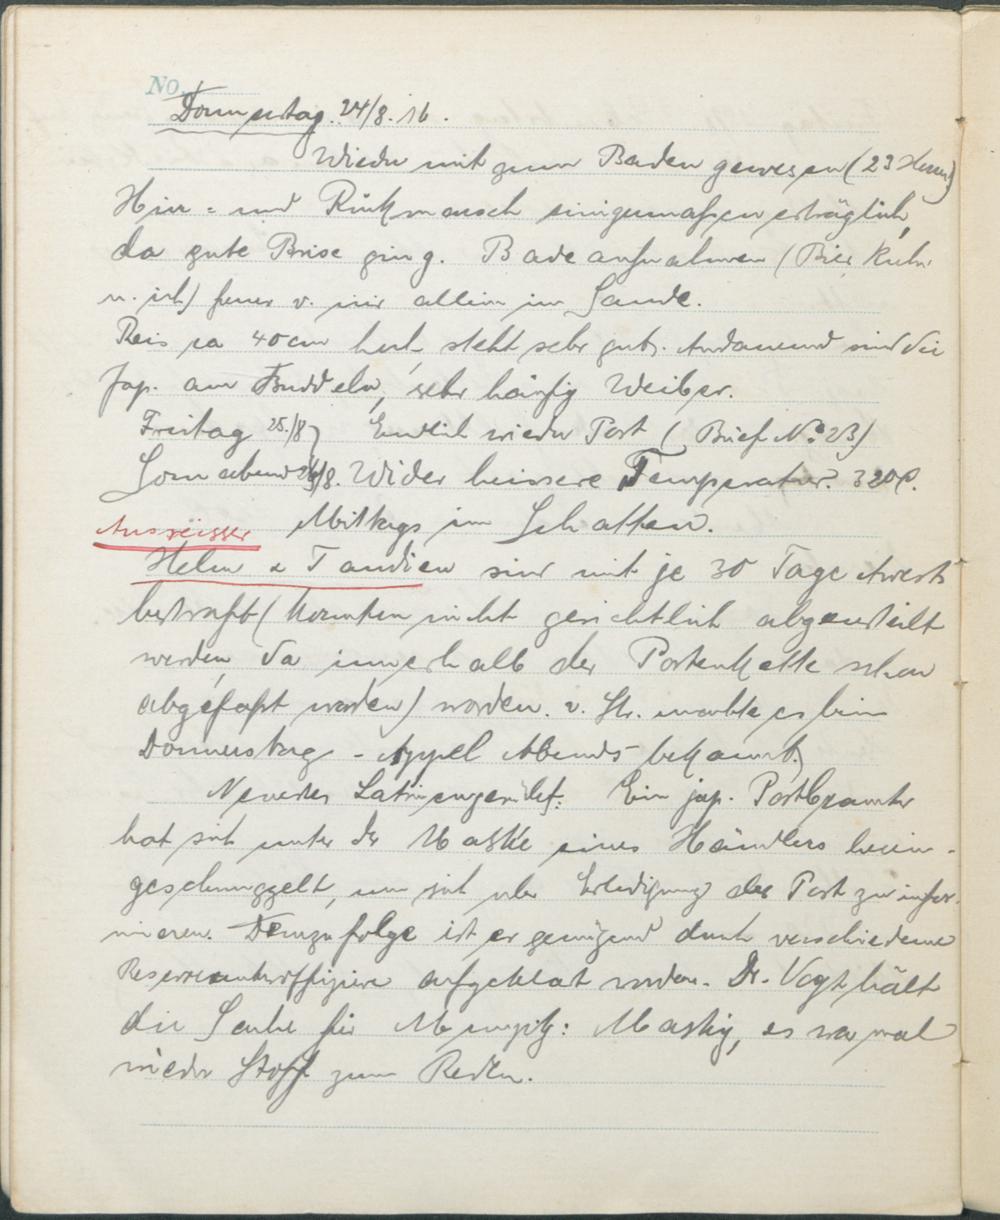 No.
Donnerstag. 24/8.16.
Wieder mit zum Baden gewesen (23 Herren)
Hin- und Rückmarsch einigermaßen erträglich,
da gute Brise ging. Badeaufnahmen (Bier, Kuhn
u. ich) ferner v. mir allein im Sande.
Reis ca 40 cm hoch, steht sehr gut. Andauernd sind die
Jap. am Buddeln, sehr häufig Weiber.
Freitag 25./8. Endlich wieder Post (Brief No. 23)
Sonnabend 26/8. Wider heissere Temperatur. 32°C.
Mittags im Schatten.
Ausreisser
Helm & Taudien sind mit je 30 Tage Arrest
bestraft (konnten nicht gerichtlich abgeurteilt
werden, da innerhalb der Postenkette schon
abgefaßt worden) worden. v. Str. machte es beim
Donnerstag-Appel Abends bekannt.
Neuestes Latrinengerücht: Ein jap. Postbeamter
hat sich unter der Maske eines Händlers herein-
geschmuggelt, um sich über Erledigung der Post zu infor-
mieren. Demzufolge ist er genügend durch verschiedene
Reserveunteroffiziere aufgeklärt worden. Dr. Vogt hält
die Sache für Mumpitz: Maskig, es war mal
wieder Stoff zum Reden.